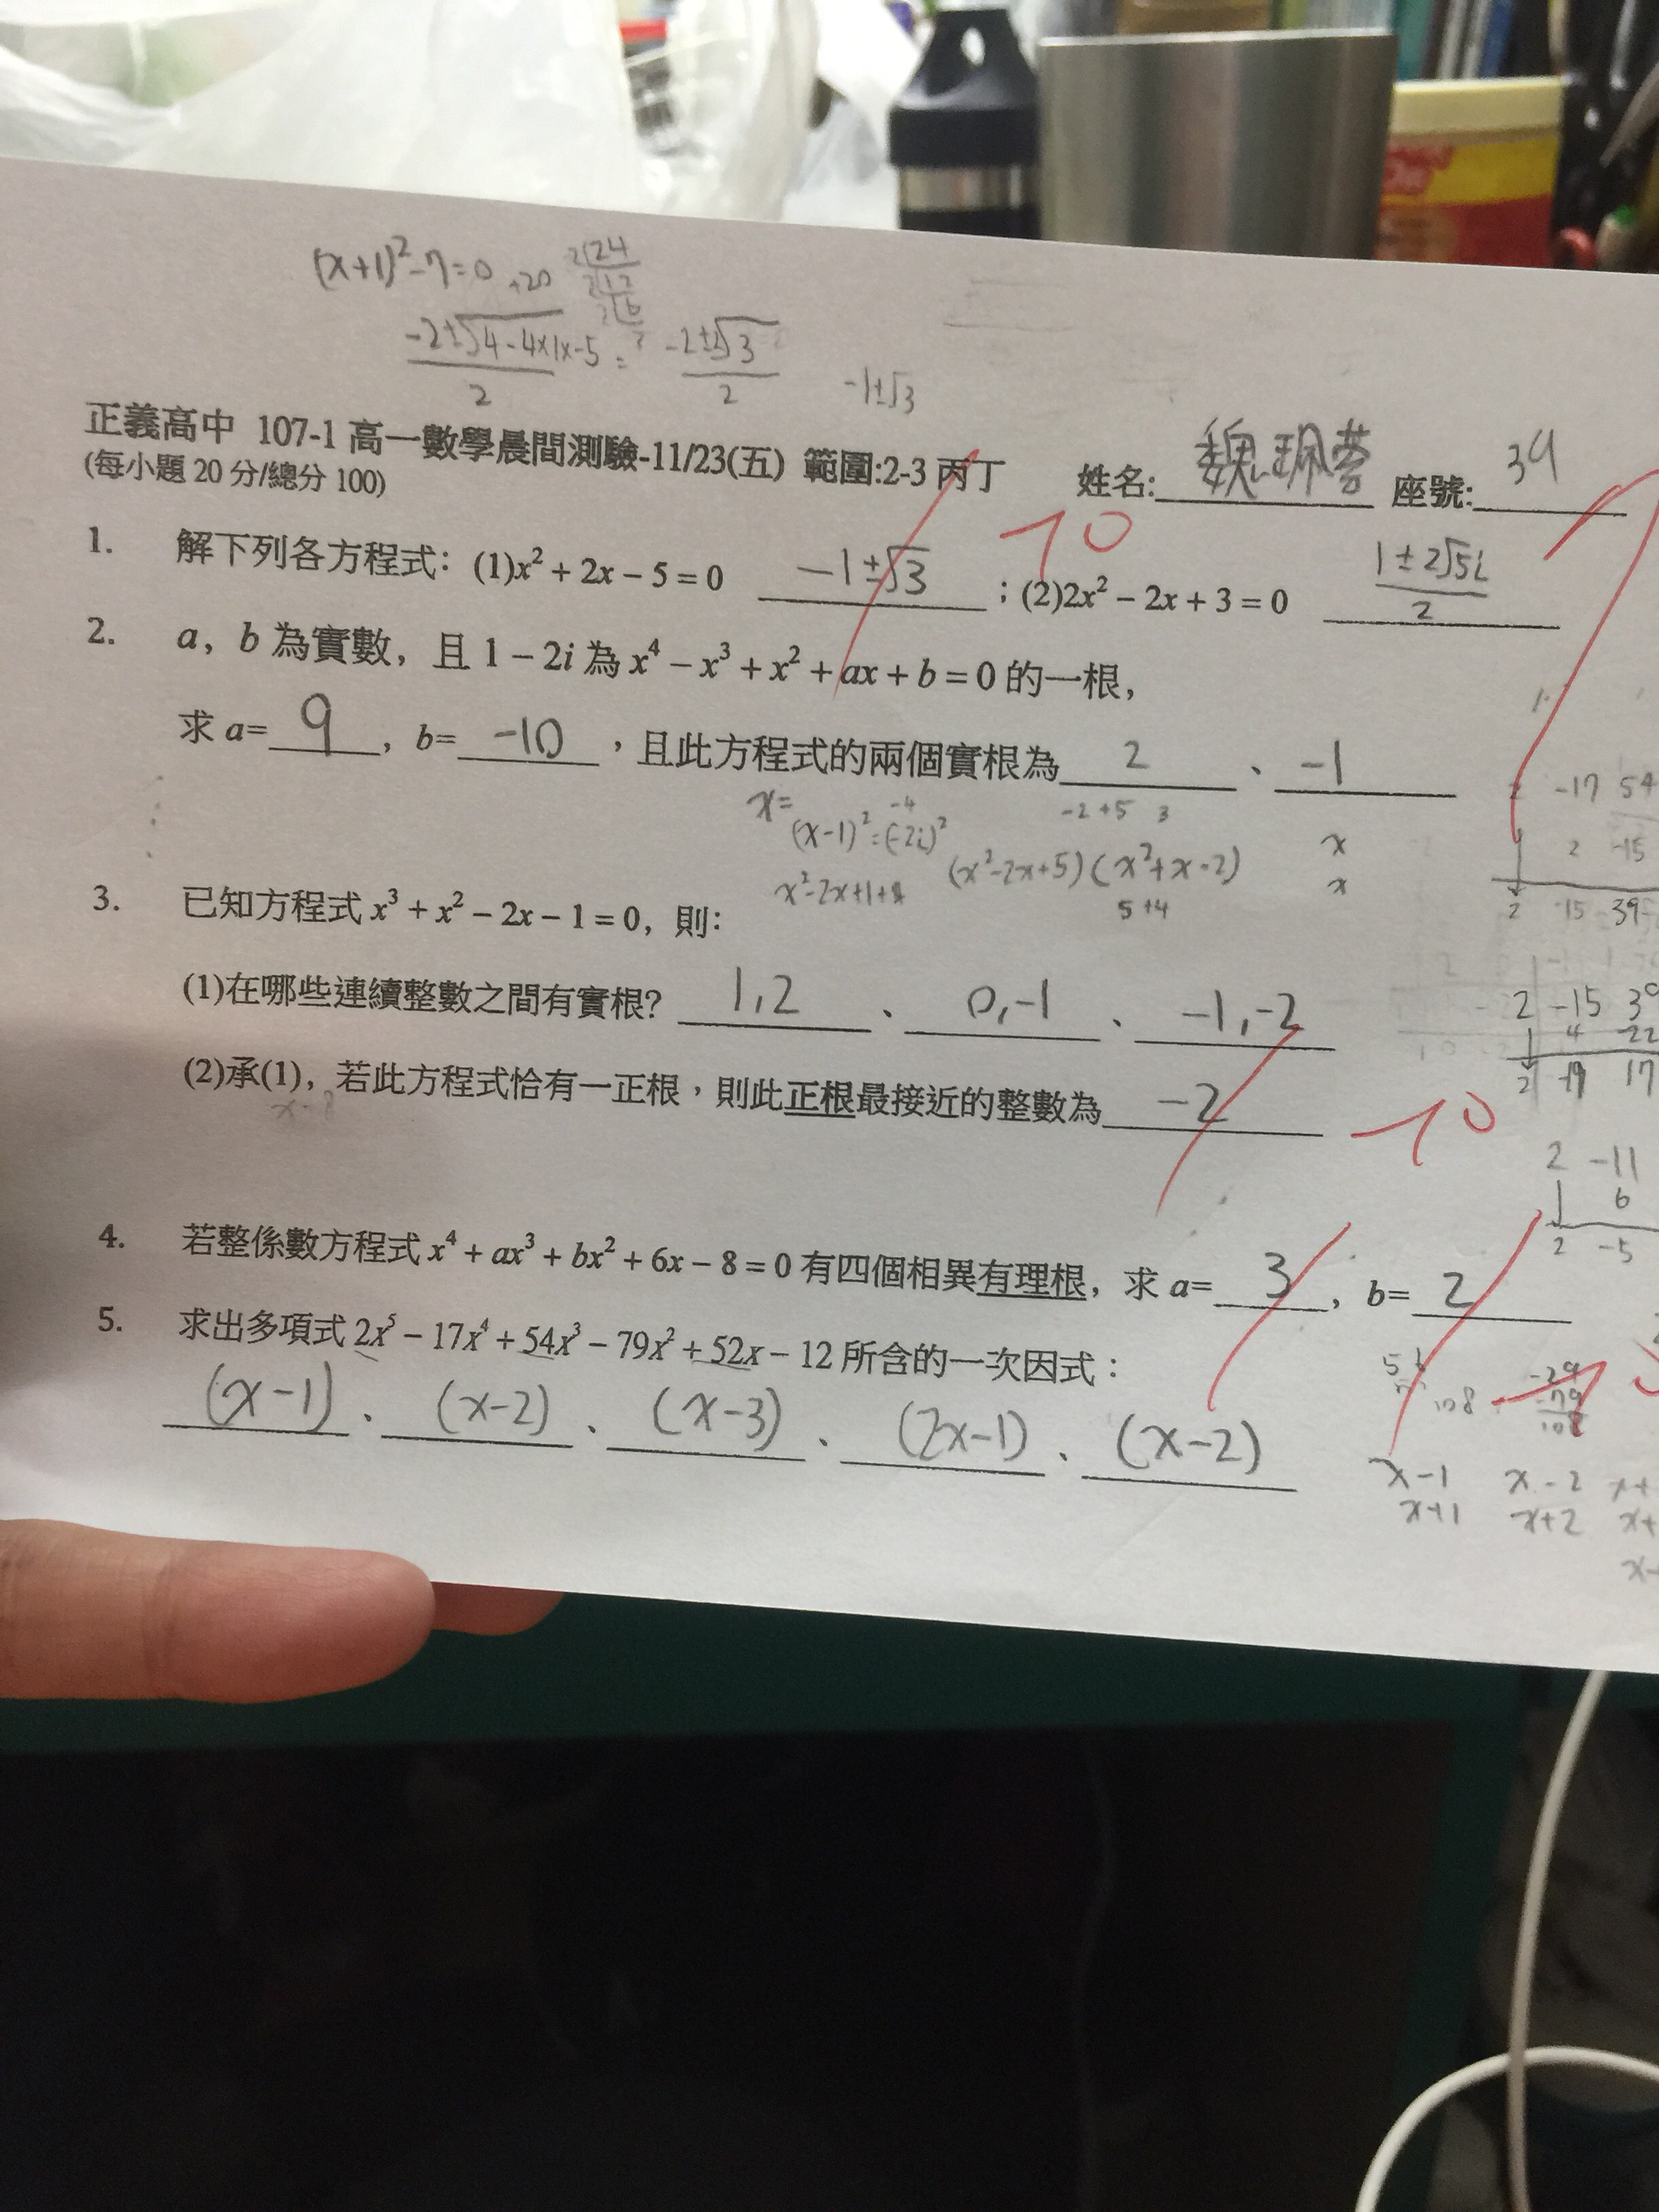 (x+1)²-7=0 +20 2|24
-2±√4-4×1×-5 / 2 = -2±2√3 / 2 -1±√3
正義高中 107-1 高一數學晨間測驗-11/23(五) 範圍:2-3 丙丁 姓名: 魏珮蓉 座號: 39
(每小題 20 分/總分 100)
-10
1. 解下列各方程式：(1)x² + 2x − 5 = 0 -1±√3 ；(2)2x² − 2x + 3 = 0 1±2√5i / 2
2. a，b 為實數，且 1 − 2i 為 x⁴ − x³ + x² + ax + b = 0 的一根，
求 a= 9 ，b= -10 ，且此方程式的兩個實根為 2 、 -1
x= -4 -2+5 3
(x-1)²=(-2i)² x
x²-2x+1+4 (x²-2x+5)(x²+x-2) x
5+4
-17 54
2 -15
2 -15 39
3. 已知方程式 x³ + x² − 2x − 1 = 0，則：
(1)在哪些連續整數之間有實根? 1,2 、 0,-1 、 -1,-2
2 -15 39
4 -22
2 -11 17
(2)承(1)，若此方程式恰有一正根，則此正根最接近的整數為 -2
x-8
-10
2 -11
6
2 -5
4. 若整係數方程式 x⁴ + ax³ + bx² + 6x − 8 = 0 有四個相異有理根，求 a= 3 ，b= 2
5. 求出多項式 2x⁵ − 17x⁴ + 54x³ − 79x² + 52x − 12 所含的一次因式：
(x-1) 、 (x-2) 、 (x-3) 、 (2x-1) 、 (x-2)
108 -29
79
108
x-1 x-2
x+1 x+2